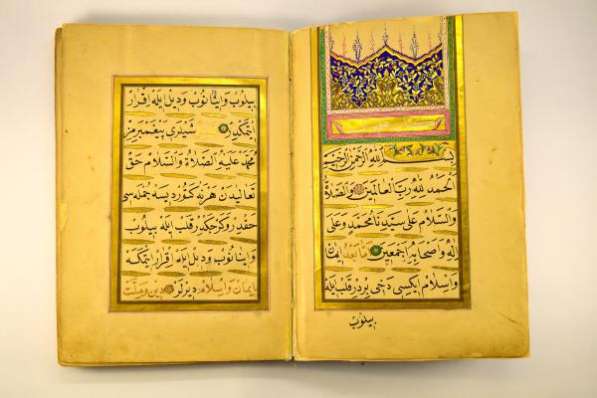 بسم الله الرحمن الرحيم
الحمد لله رب العالمين والصلاة
والسلام على سيدنا محمد وعلى
اله واصحابه اجمعين اما بعد ايمان
واسلام ايكسى دخى بردر قلب ايله
بيلوب
بيلوب واينانوب وديل ايله اقرار
ايتمكدر شيلرى پيغمبرمز
محمد عليه الصلاة والسلام حق
تعاليدن هر نه كتوردیسه جمله سى
حقدر وكرچكدر قلب ايله بيلوب
واينانوب وديل ايله اقرار ايتمكه
ايمان واسلام ديرلر دين وملت